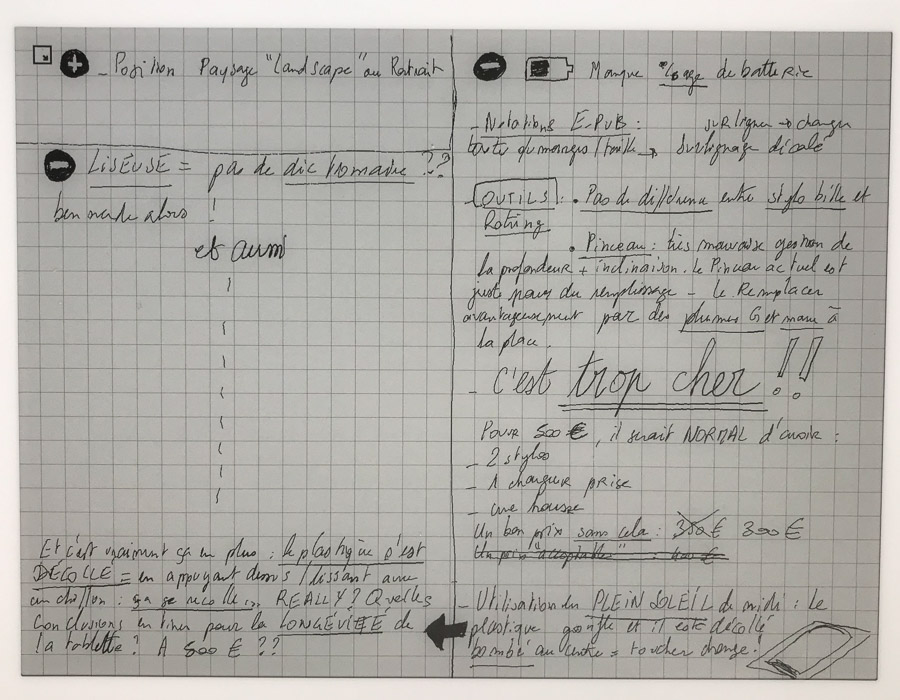 - Position Paysage "Landscape" ou Portrait
LISEUSE = pas de dictionnaire ??
ben merde alors !
et aussi
Et c'est vraiment ça en plus : le plastique s'est
DÉCOLLÉ = en appuyant dessus / lissant avec
un chiffon : ça se recolle... REALLY? Quelles
conclusions en tirer pour la LONGÉVITÉ de
la tablette? A 500 € ??
Manque %age de batterie
- Notations E-PUB : surligner → changer
toute marges / taille → surlignage décalé
OUTILS : • Pas de différence entre stylo bille et
Rotring
• Pinceau : très mauvaise gestion de
la profondeur + inclinaison. Le Pinceau actuel est
juste pour du remplissage - le Remplacer
avantageusement par des plumes G et maru à
la place.
- C'est trop cher !!
Pour 500 €, il serait NORMAL d'avoir :
- 2 stylos
- 1 chargeur prise
- une housse
Un bon prix sans cela : 350 € 300 €
Un prix "acceptable" : 400 €
- Utilisation en PLEIN SOLEIL de midi : le
plastique gonfle et il est décollé
bombé au centre = toucher change !